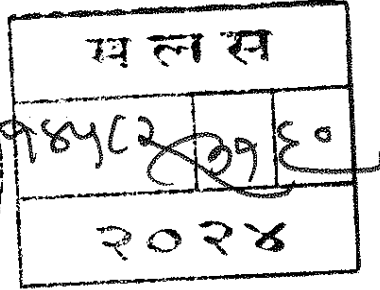 म ल स
१४५८२ ३१ ६०
२०२४